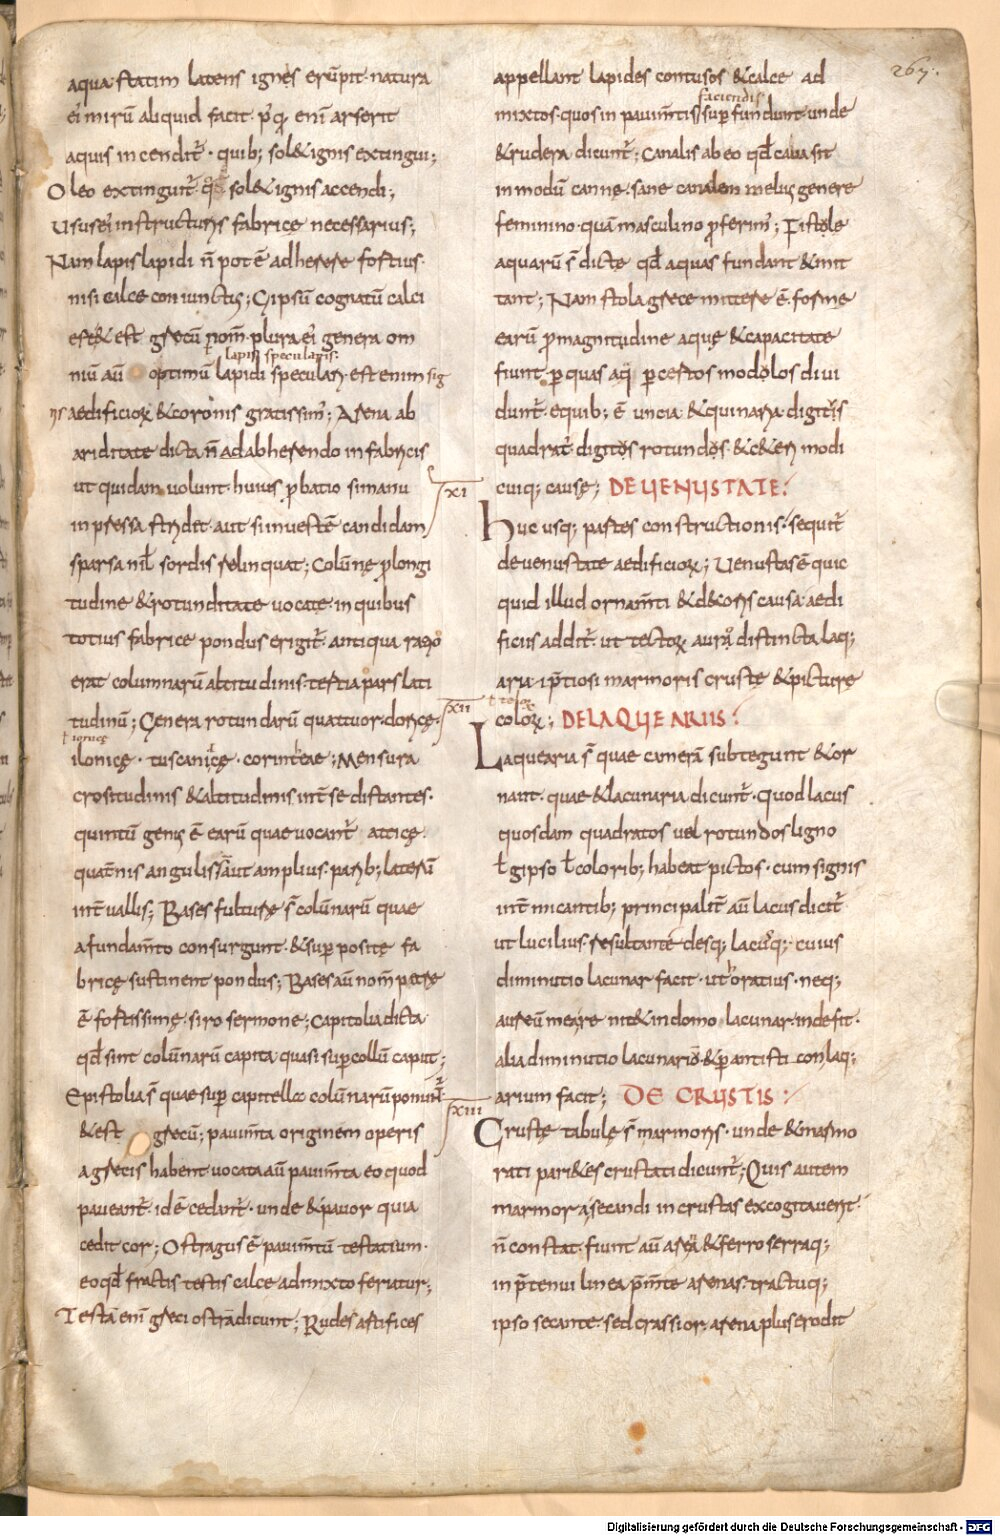 aqua statim latens ignes erūpit natura
ei mirū aliquid facit p̄q; enī arserit
aquis incendit̄ · quib; sol& ignis extingui;
Oleo extinguit̄ sol& ignis accendi;
Usus ei in structuris fabricę necessarius;
Nam lapis lapidi n̄ potē adherere fortius
nisi calce coniunctis; Gipsū cognatū calci
ee & est grecū nom̄ plura ei genera om
lapis specularis
niū aū optimū lapidi speculari est enim sig
nis aedificioꝝ & coronis gratissim̄; Arena ab
ariditate dicta n̄ ad abherendo in fabricis
ut quidam uolunt huius p̱batio si manu
in pressa stridet aut si in uestē candidam
sparsa nil̄ sordis relinquat; Colūnę p̱ longi
tudine & rotunditate uocatę in quibus
totius fabrice pondus erigit̄ antiqua razio
erat columnarū altitudinis tertia pars lati
tudinū; Genera rotundarū quattuor doricę
ł ionicę
ilonicę · tuscanicę · corintheae; Mensura
crositudinis & altitudinis int̄ se distantes ·
quintū genus ē earū quae uocant̄ atticę
quat̄nis angulis aut amplius parib; laterū
int̄uallis; Bases fulturę s̄ colūnarū quae
a fundam̄to consurgunt & sup̱ positę fa
bricę sustinent pondus; Bases aū nom̄ petrę
ē fortissimę siro sermone; Capitolia dicta
qd̄ sint colūnarū capita quasi sup̱ collū caput;
Epistolia s̄ quae sup̱ capitella colūnarū ponunt̄
& est grecū; pauim̄ta originem operis
a grecis habent uocata aū pauim̄ta eo quod
paueant̄ id ē cedant̄ · unde & pauor quia
cedit cor; Ostragus ē pauim̄tū testatium ·
eo qd̄ fractis testis calce admixto feriatur;
Testā enī greci ostrā dicunt; Rudes artifices
267
appellant lapides contusos & calce ad
faciendis
mixtos quos in pauim̄tis sup̱fundunt unde
& rudera dicunt̄; Canalis ab eo qd̄ caua sit
in modū cannę sane canalem melius genere
feminino quā masculino p̱ferim̄; Fistolę
aquarū s̄ dictę qd̄ aquas fundant & mit
tant; Nam stola grece mittere ē formę
earū p̱ magnitudine aquę & capacitate
fiunt p̱ quas aq̄ p̱ certos modolos diui
dunt̄ equib; ē uncia & quinaria digitis
quadrat̄ digitos rotundos & c&eri modi
cuiq; causę; DE UENUSTATE:
XI
Huc usq; partes constructionis sequit̄
de uenustate aedificioꝝ; Uenustas ē quic
quid illud ornam̄ti & decoris causa aedi
ficiis addit̄ ut tectoꝝ aura distincta laq;
aria ip̄tiosi marmoris crustę & picturę
XII
coloꝝ; DE LAQUEARIIS:
Laquearia s̄ quae camerā subtegunt & or
nant quae & lacunaria dicunt̄ quod lacus
quosdam quadratos uel rotundos ligno
ł gipso ł colorib; habeat pictos · cum signis
int̄micantib; principalit̄ aū lacus dicit̄
ut lucilius resultante desq; lacusq; cuius
diminutio lacunar facit ut horatius neq;
aureū meare nit& in domo lacunar inde fit
alia diminutio lacunariō & p̱ antisticon laq;
arium facit; DE CRUSTIS:
XIII
Crustę tabulę s̄ marmoris unde & marmo
rati pari&es crustati dicunt̄; Quis autem
marmora secandi in crustas excogitauerit
n̄ constat fiunt aū arena & ferro serraq;
in p̄tenui linea p̄m̄te arenas tractuq;
ipso secante sed crassior arena plus erodit
Digitalisierung gefördert durch die Deutsche Forschungsgemeinschaft - DFG